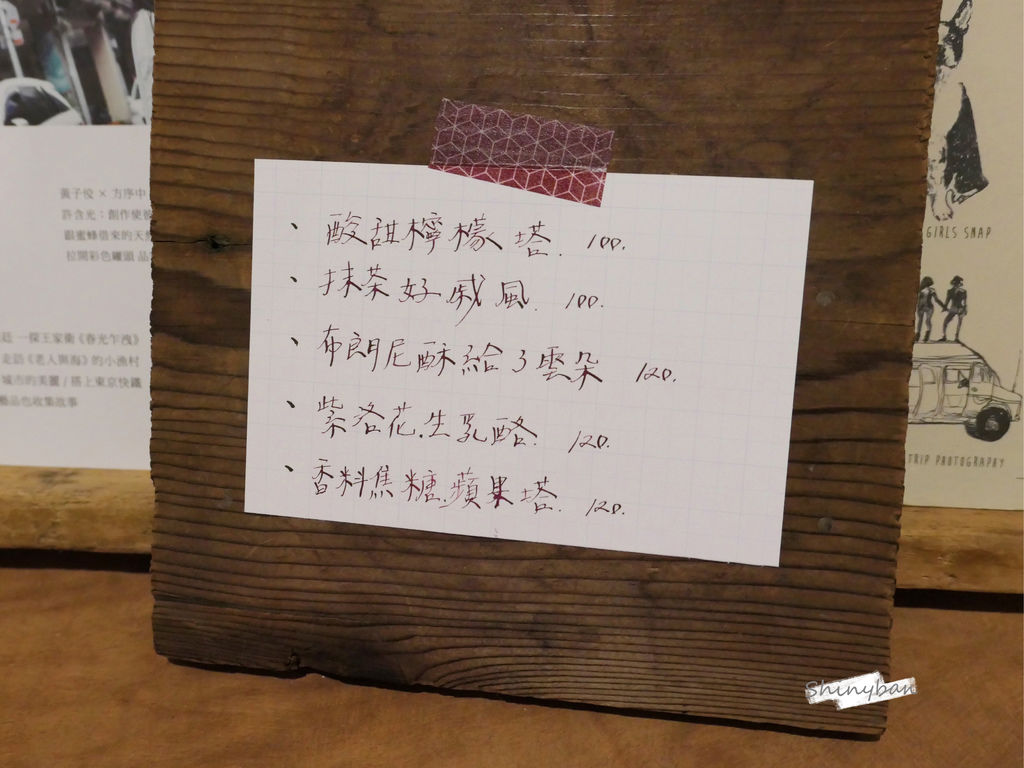 、酸甜檸檬塔. 100.
、抹茶好戚風. 100.
、布朗尼酥給了雲朵 120.
、紫洛花.生乳酪. 120.
、香料焦糖.蘋果塔. 120.
黃子佼 × 方序中
許含光：創作使彼
跟蜜蜂借來的天然
拉開彩色罐頭 品
廷 一探王家衛《春光乍洩》
走訪《老人與海》的小漁村
城市的美麗 / 搭上東京快鐵
藝品也收集故事
GIRLS SNAP
TRIP PHOTOGRAPHY
Shinyban